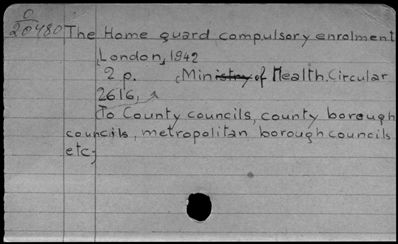 O
20480
The Home guard compulsory enrolment
London, 1942
2 p. (Ministry of Health. Circular
2616,
(To County councils, county borough
councils, metropolitan borough councils
etc;